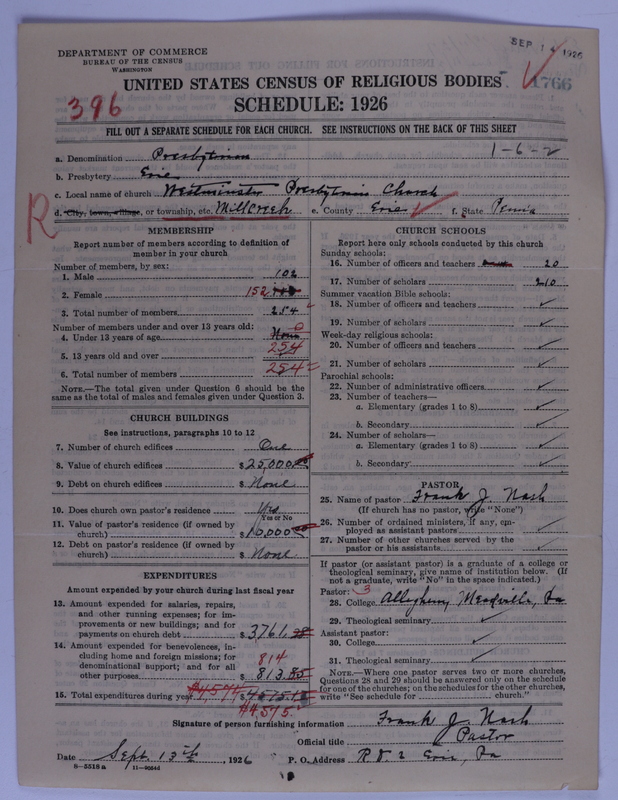 SEP 14 1926
1766
DEPARTMENT OF COMMERCE
BUREAU OF THE CENSUS
WASHINGTON
UNITED STATES CENSUS OF RELIGIOUS BODIES
396
SCHEDULE: 1926
FILL OUT A SEPARATE SCHEDULE FOR EACH CHURCH. SEE INSTRUCTIONS ON THE BACK OF THIS SHEET
1-6-2
a. Denomination Presbyterian
b. Presbytery Erie
c. Local name of church Westminster Presbyterian Church
R
d. City, town, village, or township, etc. Millcreek e. County Erie f. State Penna
MEMBERSHIP
Report number of members according to definition of member in your church
Number of members, by sex:
1. Male 102
2. Female 152
3. Total number of members 254
Number of members under and over 13 years old:
4. Under 13 years of age None 0
5. 13 years old and over 254
6. Total number of members 254
NOTE.—The total given under Question 6 should be the same as the total of males and females given under Question 3.
CHURCH BUILDINGS
See instructions, paragraphs 10 to 12
7. Number of church edifices One
8. Value of church edifices $25,000.00
9. Debt on church edifices $None
10. Does church own pastor's residence Yes
Yes or No
11. Value of pastor's residence (if owned by church) $10,000.00
12. Debt on pastor's residence (if owned by church) $None
EXPENDITURES
Amount expended by your church during last fiscal year
13. Amount expended for salaries, repairs, and other running expenses; for improvements or new buildings; and for payments on church debt $3761.28
14. Amount expended for benevolences, including home and foreign missions; for denominational support; and for all other purposes 814 $813.85
15. Total expenditures during year $4574 $4575.13
$4575.
CHURCH SCHOOLS
Report here only schools conducted by this church
Sunday schools:
16. Number of officers and teachers 20
17. Number of scholars 210
Summer vacation Bible schools:
18. Number of officers and teachers
19. Number of scholars
Week-day religious schools:
20. Number of officers and teachers
21. Number of scholars
Parochial schools:
22. Number of administrative officers
23. Number of teachers—
a. Elementary (grades 1 to 8)
b. Secondary
24. Number of scholars—
a. Elementary (grades 1 to 8)
b. Secondary
PASTOR
25. Name of pastor Frank J. Nash
(If church has no pastor, write "None")
26. Number of ordained ministers, if any, employed as assistant pastors
27. Number of other churches served by the pastor or his assistants
If pastor (or assistant pastor) is a graduate of a college or theological seminary, give name of institution below. (If not a graduate, write "No" in the space indicated.)
Pastor: 3
28. College Allegheny Meadville, Pa
29. Theological seminary
Assistant pastor:
30. College
31. Theological seminary
NOTE.—Where one pastor serves two or more churches, Questions 28 and 29 should be answered only on the schedule for one of the churches; on the schedules for the other churches, write "See schedule for church."
Signature of person furnishing information Frank J. Nash
Official title Pastor
Date Sept. 13th, 1926 P. O. Address R D. 2 Erie, Pa
8-5518a